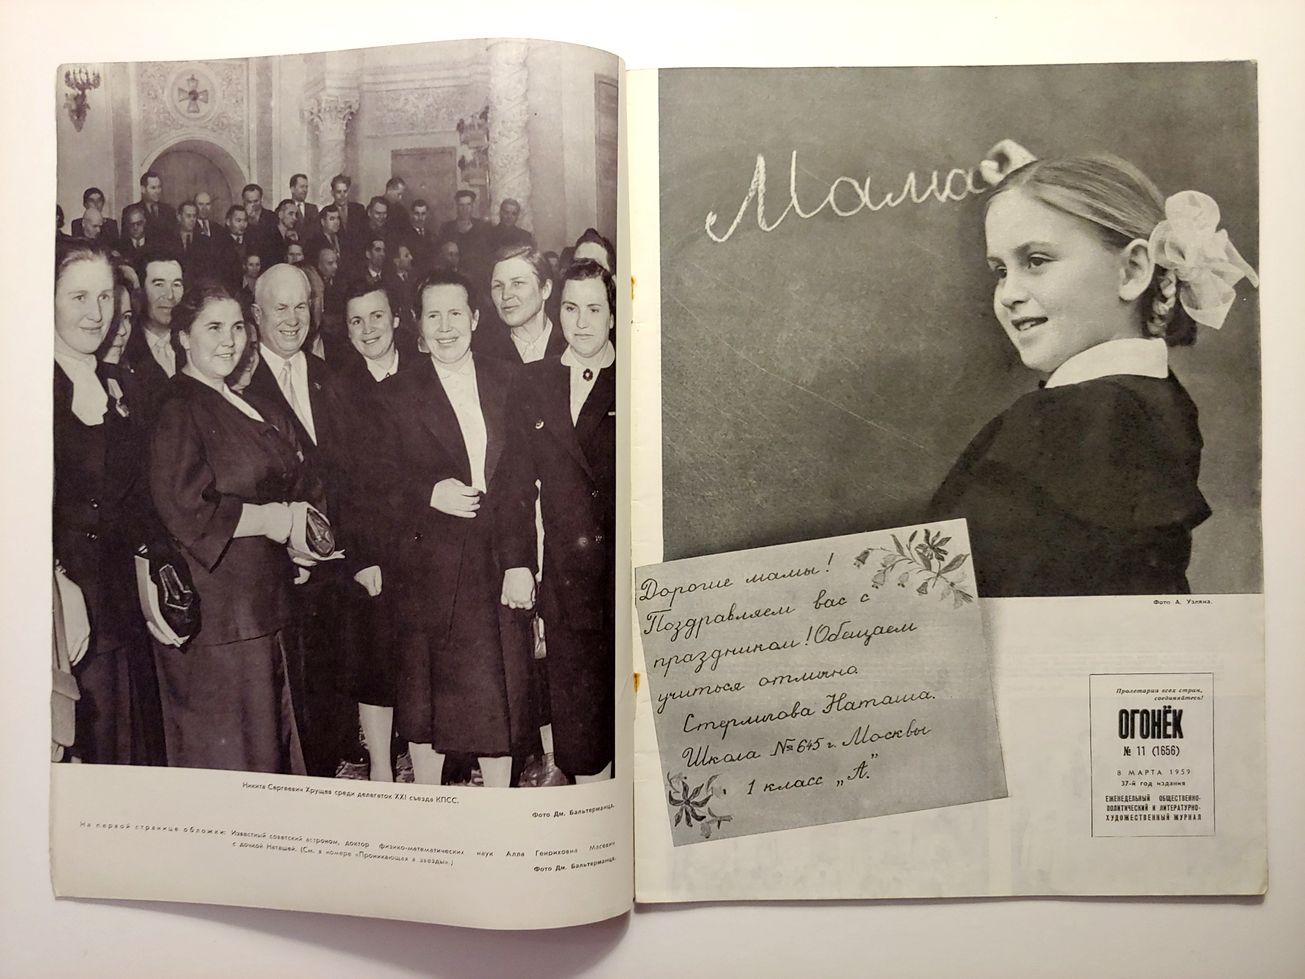 Никита Сергеевич Хрущев среди делегаток XXI съезда КПСС.
Фото Дм. Бальтерманца.
На первой странице обложки: Известный советский астроном, доктор физико-математических наук Алла Генриховна Масевич
с дочкой Наташей. (См. в номере «Проникающая в звезды».)
Фото Дм. Бальтерманца.
Мама
Фото А. Узляна.
Дорогие мамы!
Поздравляем вас с
праздником! Обещаем
учиться отлично.
Стермигова Наташа.
Школа № 645 г. Москвы
1 класс „А".
Пролетарии всех стран,
соединяйтесь!
ОГОНЁК
№ 11 (1656)
8 МАРТА 1959
37-й год издания
ЕЖЕНЕДЕЛЬНЫЙ ОБЩЕСТВЕННО-
ПОЛИТИЧЕСКИЙ И ЛИТЕРАТУРНО-
ХУДОЖЕСТВЕННЫЙ ЖУРНАЛ